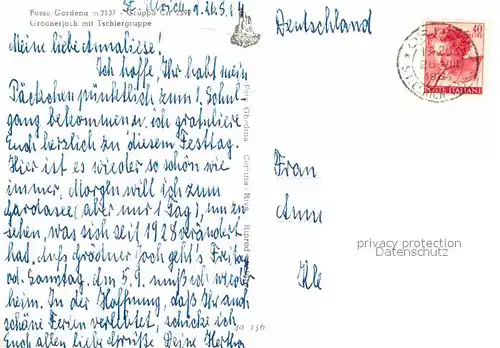 Passo Gardena m 2137 - Gruppo Cir 2592
Grödnerjoch mit Tschiergruppe
St. Ulrich,
Meine liebe Annaliese!
Ich hoffe, Ihr habt mein
Päckchen pünktlich zum 1. Schul
gang bekommen u. ich gratuliere
Euch herzlich zu diesem Festtag.
Hier ist es wieder so schön wie
immer. Morgen will ich zum
Gardasee, aber nur 1 Tag, um zu
sehen, was sich seit 1928 verändert
hat. Aufs Grödner joch geht's Freitag
od. Samstag, dem 5.9. muß ich wieder
heim. In der Hoffnung, daß Ihr auch
schöne Ferien verlebtet, schicke ich
Euch allen liebe Grüße Deine Hertha
Foto Ghedina Cortina
30 156
Deutschland
40
POSTE ITALIANE
Frau
Anne
privacy protection
Datenschutz